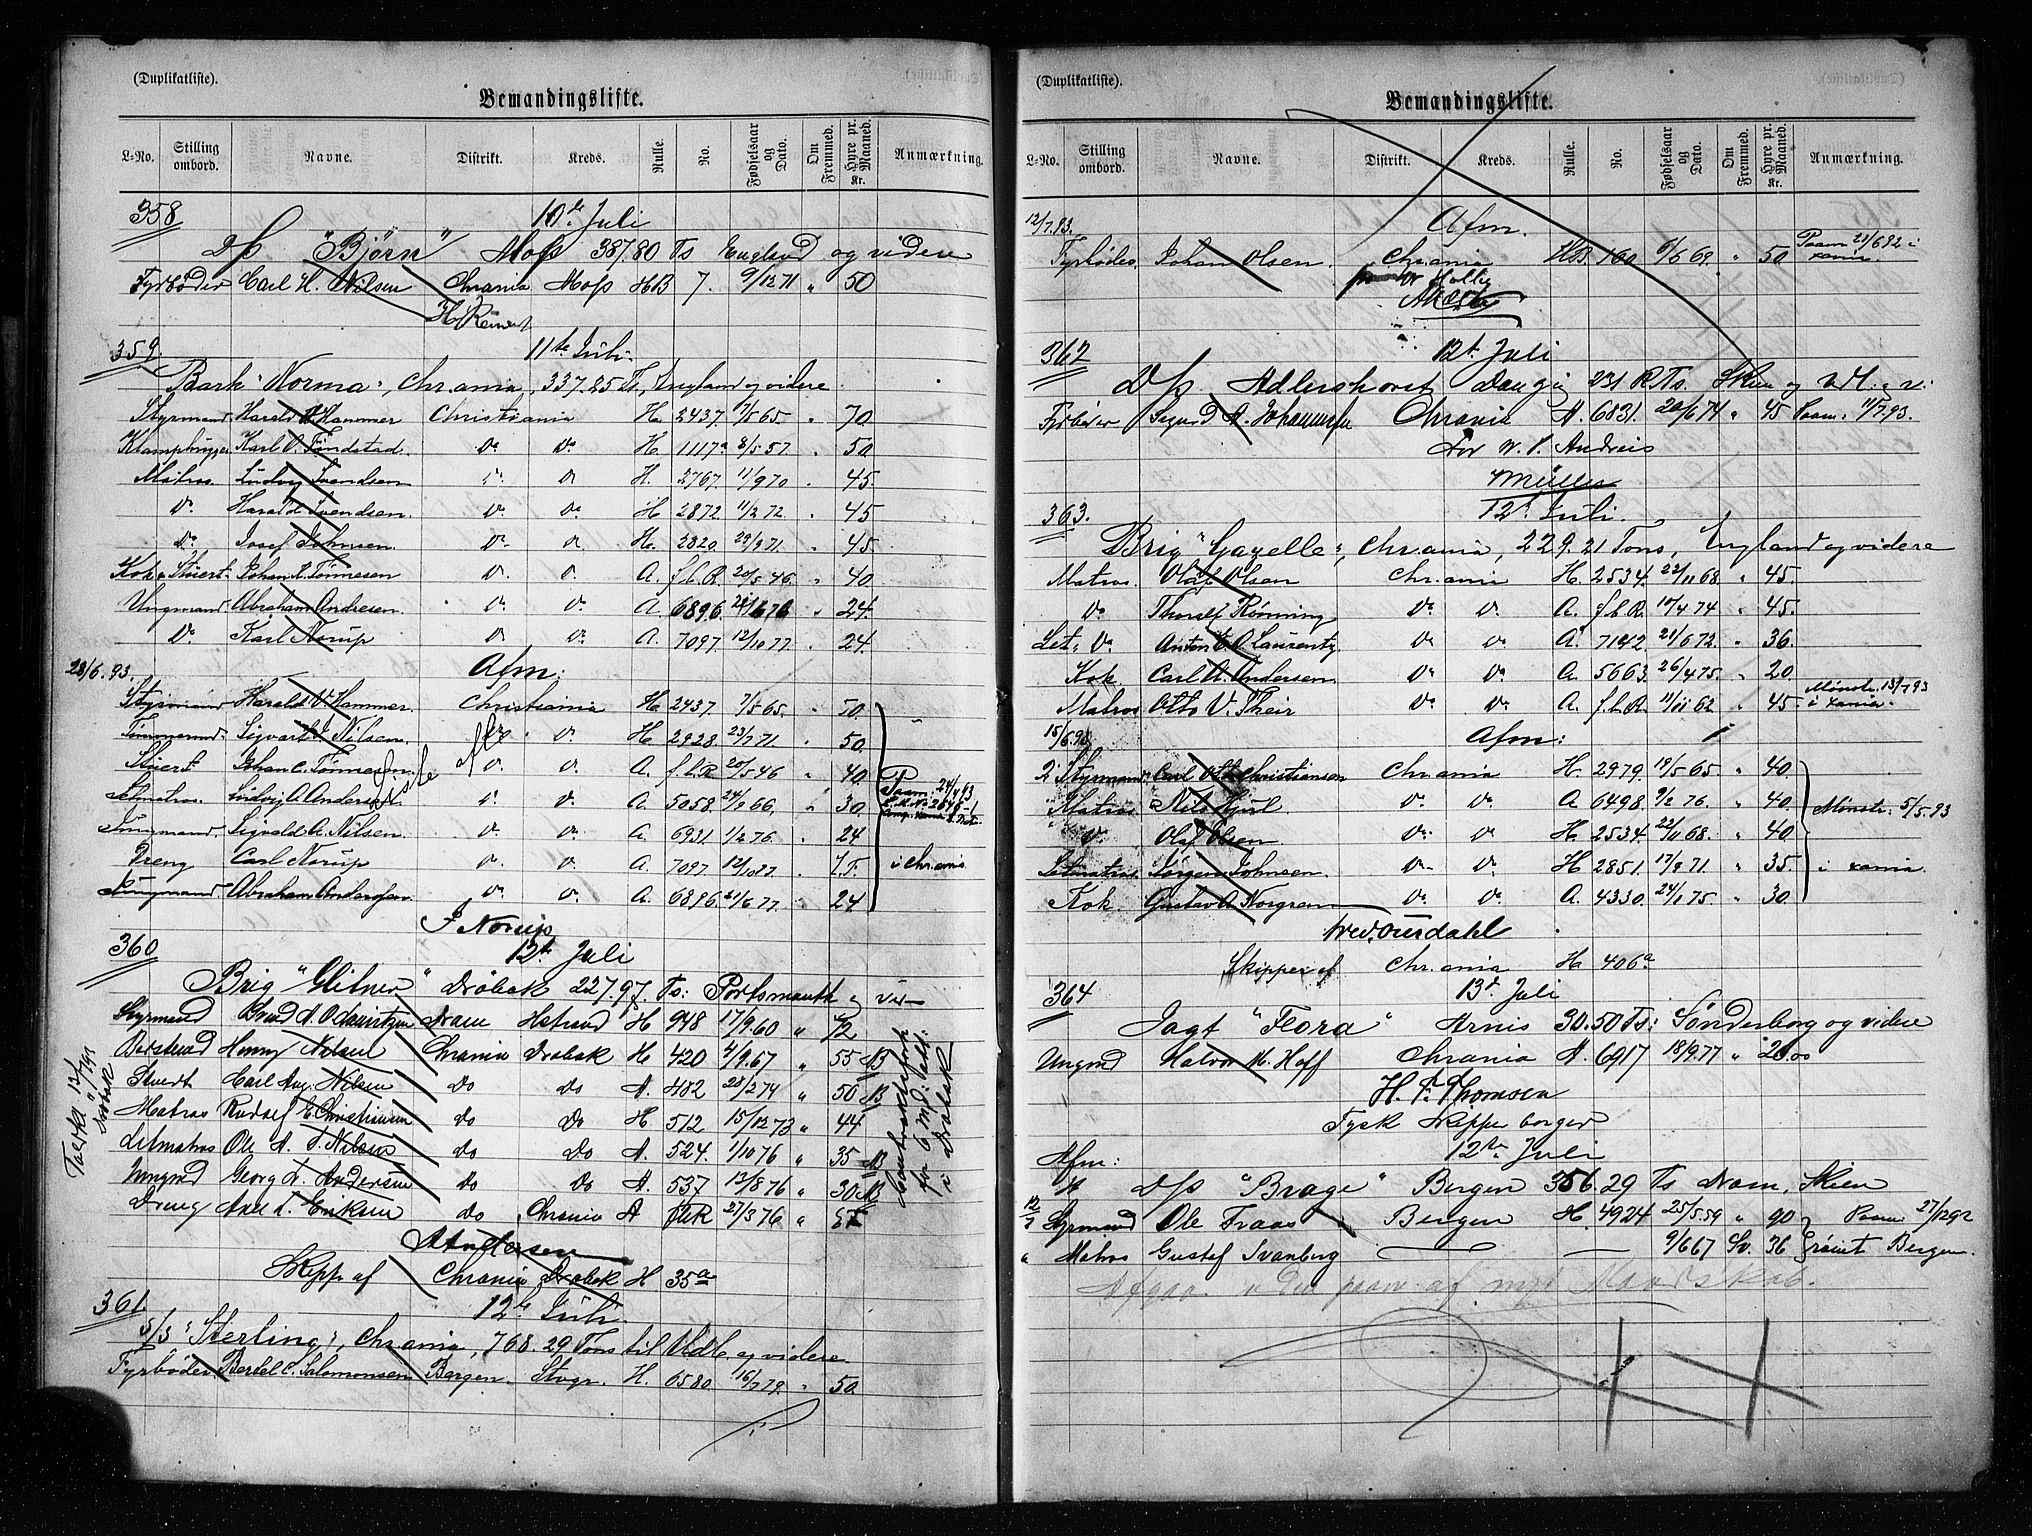 (Duplikatliste).
Bemandingsliste.
L-No. Stilling ombord. Navne. Distrikt. Kreds. Rulle. No. Fødselsaar og Dato. Om Fremmed. Hyre pr. Maaned. Kr. Anmærkning.
358 10de Juli
D/S "Bjørn" Moss 387.80 Ts England og videre
Fyrbøder Carl H. Nilsen Chrania Moss HB 7. 9/12 71 " 50
359. 11te Juli
Bark "Norma", Chr.ania, 337.25 Ts, England og videre
Styrmand Harald V. Hammer Christiania H. 2437. 7/5 65. " 70
Karl O. Tøndstad do do H. 1117a 8/5 57. " 50
Matros. Ludvig Svendsen do do H. 2767. 11/9 70 " 45.
do Harald Svendsen. do do H 2872. 11/2 72. " 45
do Josef Johnsen. do do H. 2820. 29/9 71. " 45.
Kok & Stuert. Johan C. Tønnesen do do A. f.l.R. 20/5 46. " 40
Ungmand. Abraham Andresen. do do A. 6896. 21/6 76 " 24.
do Karl Norup do do A. 7097. 12/10 77. " 24.
28/6.93. Afm:
Styrmand Harald V. Hammer Christiania H. 2437 7/5 65. " 50.
Tømmermd Sigvart J. Nilsen. do do H 2928. 23/7 71. " 50.
Stuert Johan C. Tønnesen do do A. f.l.R 20/5 46 " 40.
Letmatros. Ludvig A. Andersen do do A. 5058. 24/8 66. " 30. Paam. 24/4 93
Jungmand. Sigvald A. Nilsen. do do A. 6931. 1/2 76. " 24
Dreng Carl Norup do do A. 7097 12/10 77. " 27. i Chrania
Jungmand Abraham Andersen. do do A. 6896. 21/6 77. " 24
P Norup
360 12te Juli
Brig "Glitner" Drøbak 227.97. Ts: Portsmouth og vid—
Styrmand Dram Hstrand H 948 17/9.60 " 72
Baatsmd Henry Nilsen Chrania Drøbak H 420 4/9.67 " 55 B
Stuert Carl Aug. Nilsen do do A. 482 28/2 74 " 50 B
Matros Rudolf E Christiansen do do H 512 15/12 73 " 44
Letmatros Ole A. S. Nilsen do do A. 524. 1/10 76 " 35 B
Ungmd Georg L. Andersen do do A. 537 13/8 76 " 30 B
Dreng Axel L. Eriksen do Chrania A flR 27/3 76 "
i Drøbak
A Andersen
Skipp af Chrania Drøbak H 35a
361. 12te Juli.
S/S "Sterling", Chrania, 768.29 Tons til Udl. og videre
Fyrbøder Bertel C. Salomonsen Bergen. Stvgr. H. 6580. 16/7 79. " 50.
(Duplikatliste).
Bemandingsliste.
L-No. Stilling ombord. Navne. Distrikt. Kreds. Rulle. No. Fødselsaar og Dato. Om Fremmed. Hyre pr. Maaned. Kr. Anmærkning.
12/7.93. Afm.
Fyrbøder Johan Olsen. Chrania HB. 160 6/6 69. " 50 Paam 21/6.92 i xania
362 12t Juli
D/S Adlershorst Danzig 231 R.Ts. Skien og Udl. & v:
Fyrbøder Sigurd A. Johannesen Chrania A. 6831. 20/6 74 " 45 Paam: 11/7.93.
for W. P. Andreis
Müller
363. 12te Juli.
Brig "Gazelle", Chr.ania, 229.21 Tons, England og videre
Matros. Olaf Olsen Chr.ania H. 2534. 22/11 68 " 45.
do Thoralf Rønning do do A. f.l.R. 17/4 74 " 45.
Let. do Anton E. A. Laurentz do do A. 7192. 21/6 72. " 36.
Kok. Carl A. Andersen. do do A. 5663. 26/4 75. " 20.
Matros Otto V. Their do do A. f.l.R. 11/11 62 " 45 Mønstr. 13/7 93 i xania.
15/6.93. Afm:
2. Styrmand Carl Otto Christiansen Chr.ania H. 2979. 19/5 65. " 40.
Matros Nils Hjul. do do A 6498. 9/2 76. " 40.
do Olaf Olsen do do H. 2534. 22/11 68. " 40 Mønstr. 5/5.93
Letmatros. Jørgen Johnsen. do do H 2851. 17/9 71. " 35. i xania
Kok. Gustav A. Norgren do do A. 4330. 24/1 75. " 30.
Skipper af Chr.ania H. 406a
364 13d Juli
Jagt "Flora" Arnis 30.50 Ts: Sønderborg og videre
Ungmd Halvor M. Hoff Chrania A. 6917 18/9.77 " 20.00
H. P. Thomsen
Tysk Skipper borger
Afm: 12te Juli
D/S "Brage" Bergen 356.29 Ts Dram, Skien
12/7 Styrmand Ole Fraas Bergen H. 4924 25/5.59 " 90 Paam 27/12 92
" Matros Gustaf Svanberg 9/6 67 Sv. 36 Bergen.
paam. af nyt Mandskab.